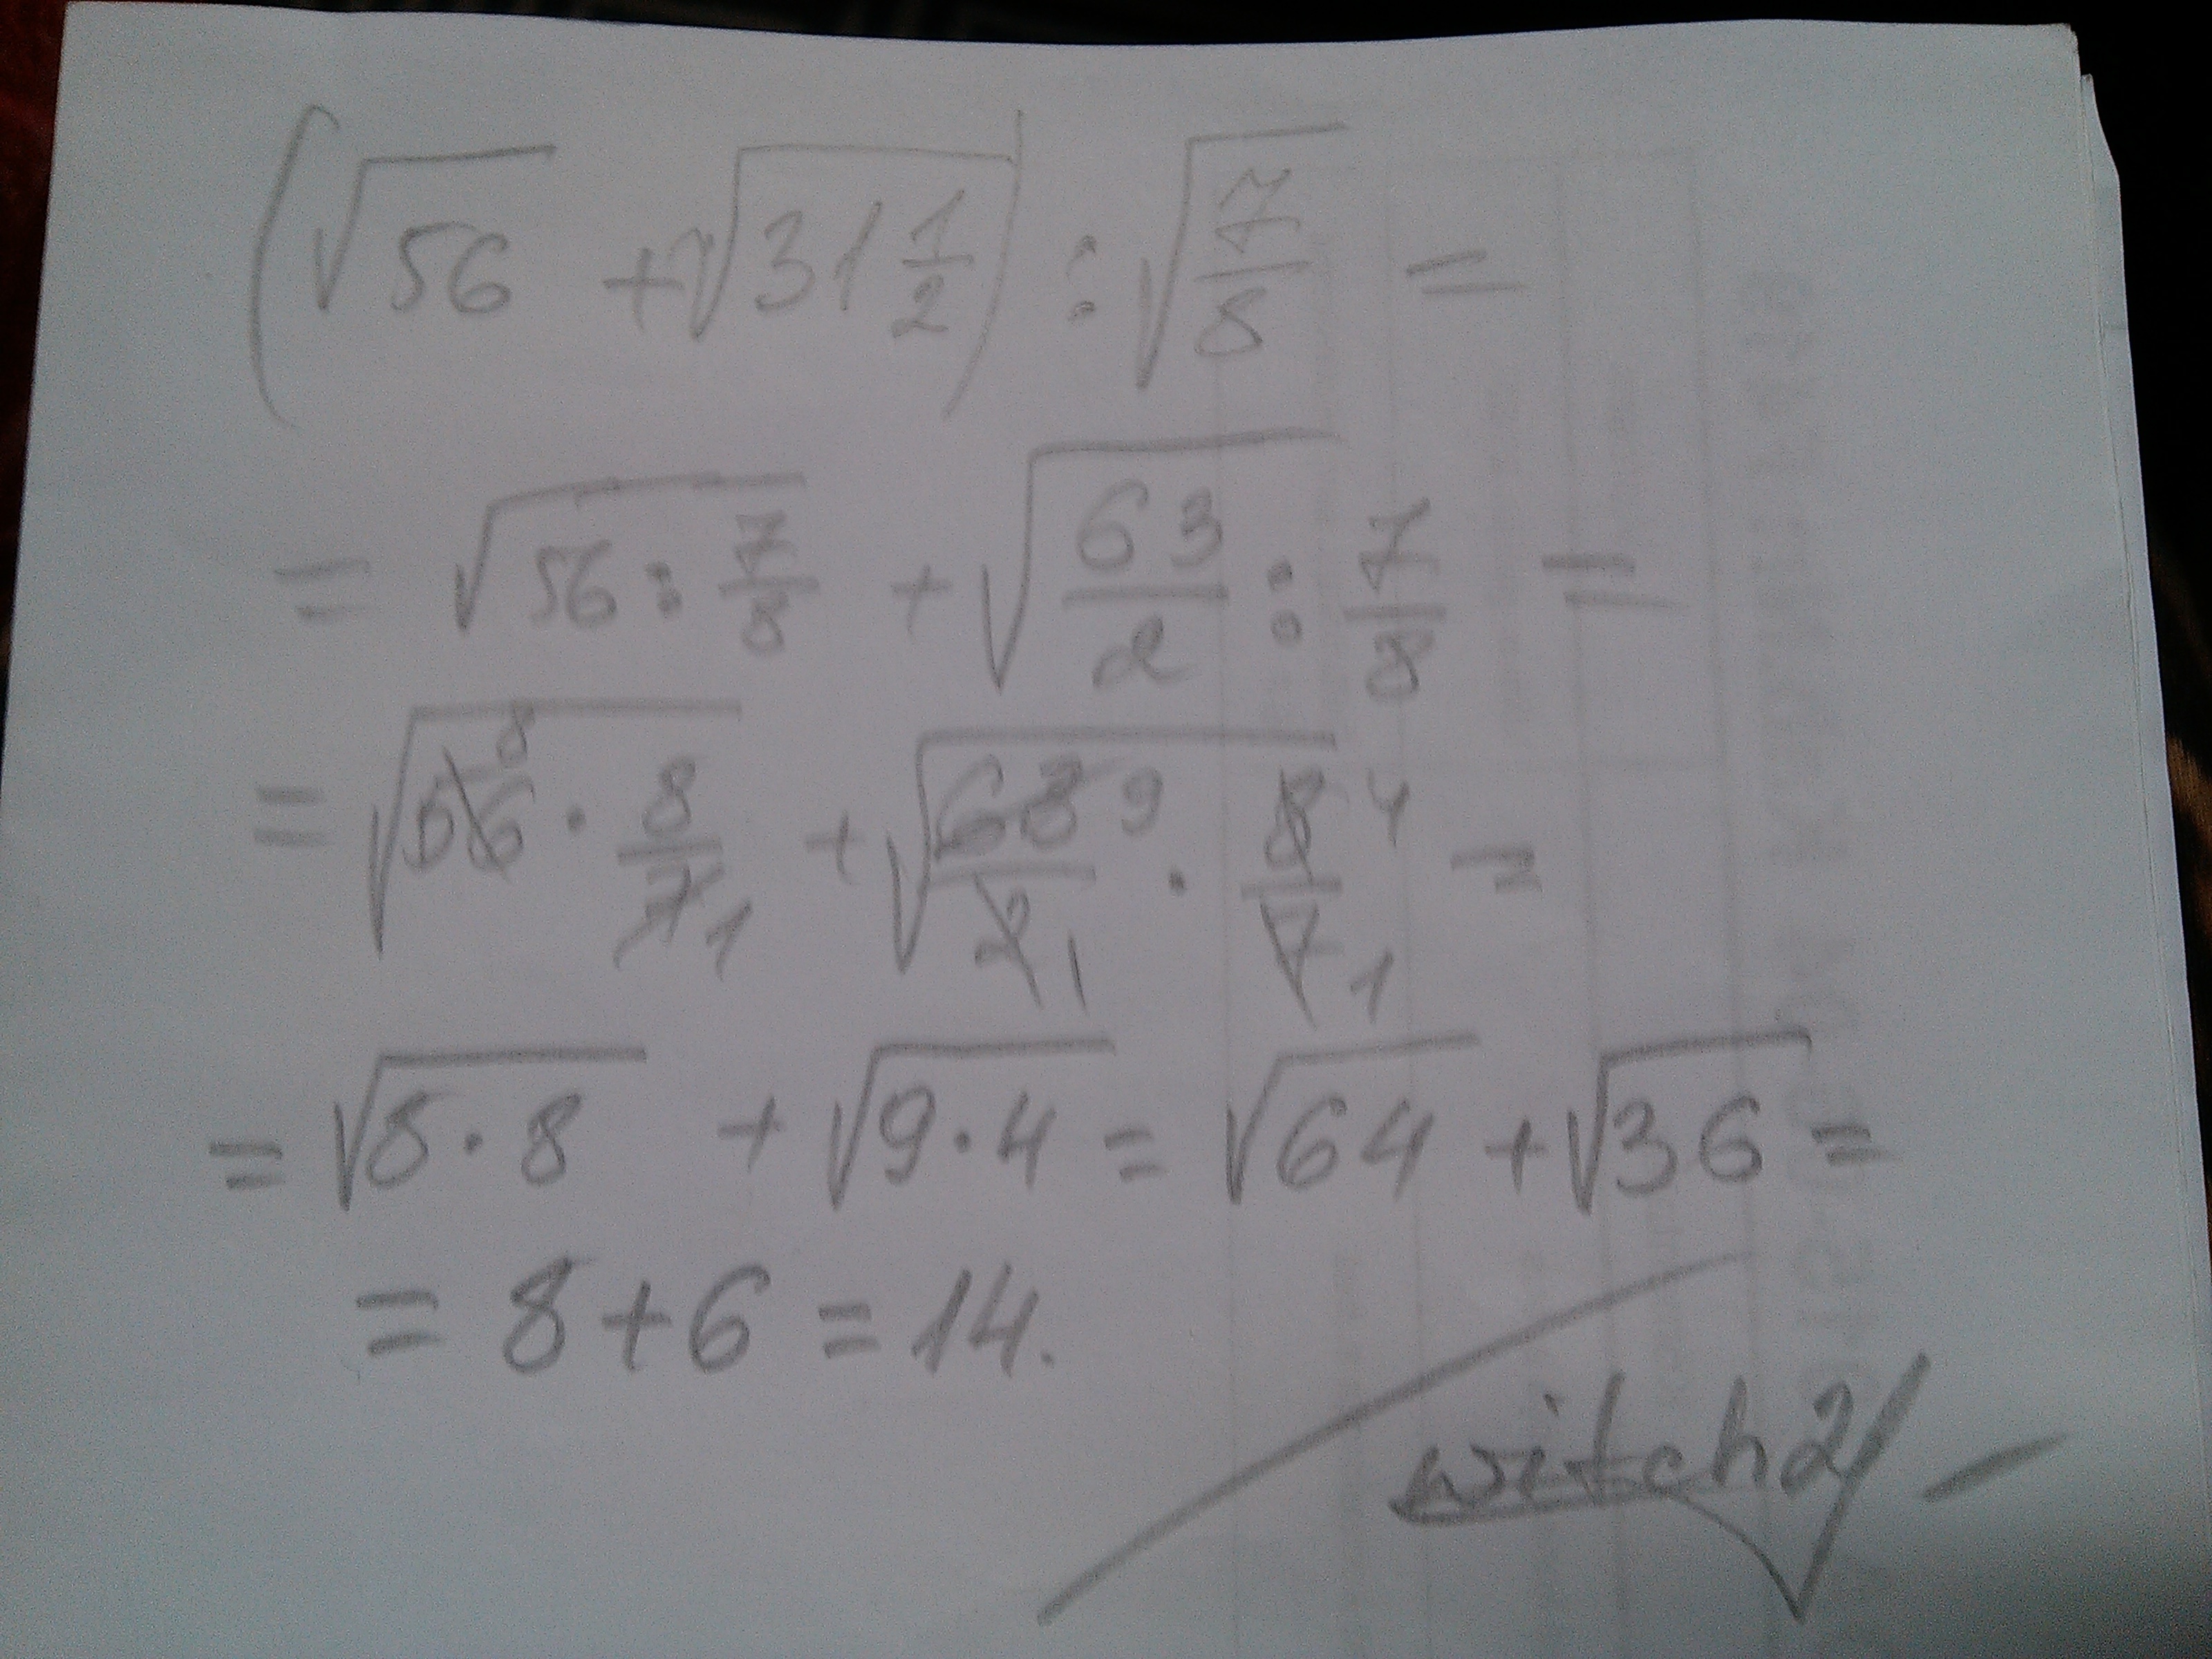 (√56 + √31 1/2) : √7/8 =
= √56 : 7/8 + √63/2 : 7/8 =
= √56 8 · 8/7 1 + √63 9/2 1 · 8 4/7 1 =
= √8·8 + √9·4 = √64 + √36 =
= 8+6 = 14.
witch2